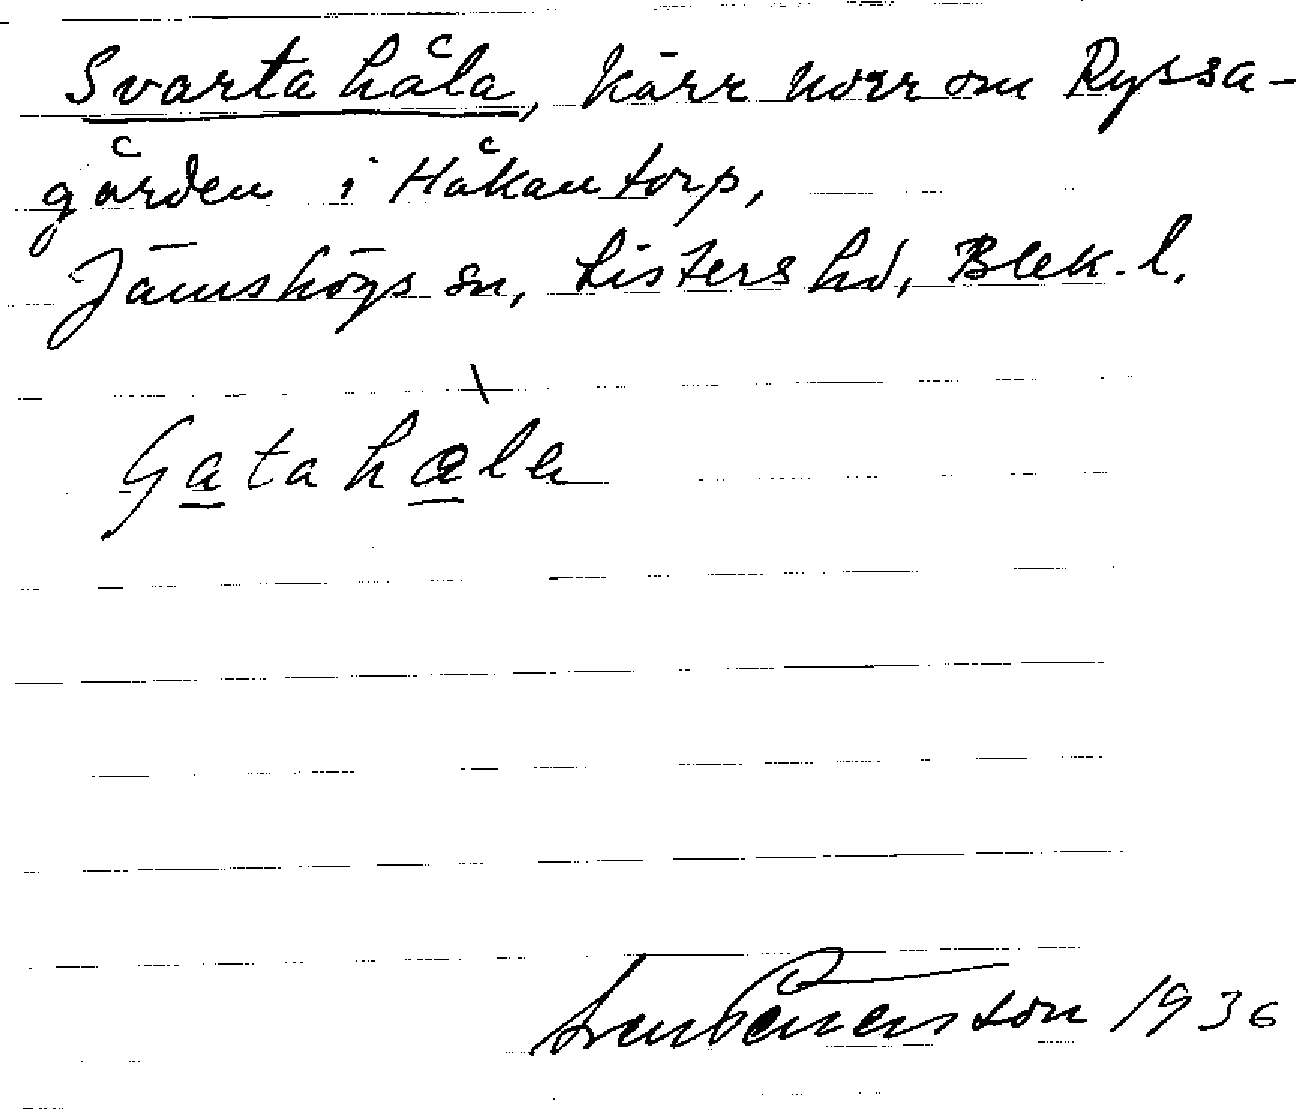 Svarta håla, kärr norr om Ryssa-
gården i Håkantorp,
Jämshögs sn, Listers hd, Blek. l.
Gatahåla
Sven Benson 1936